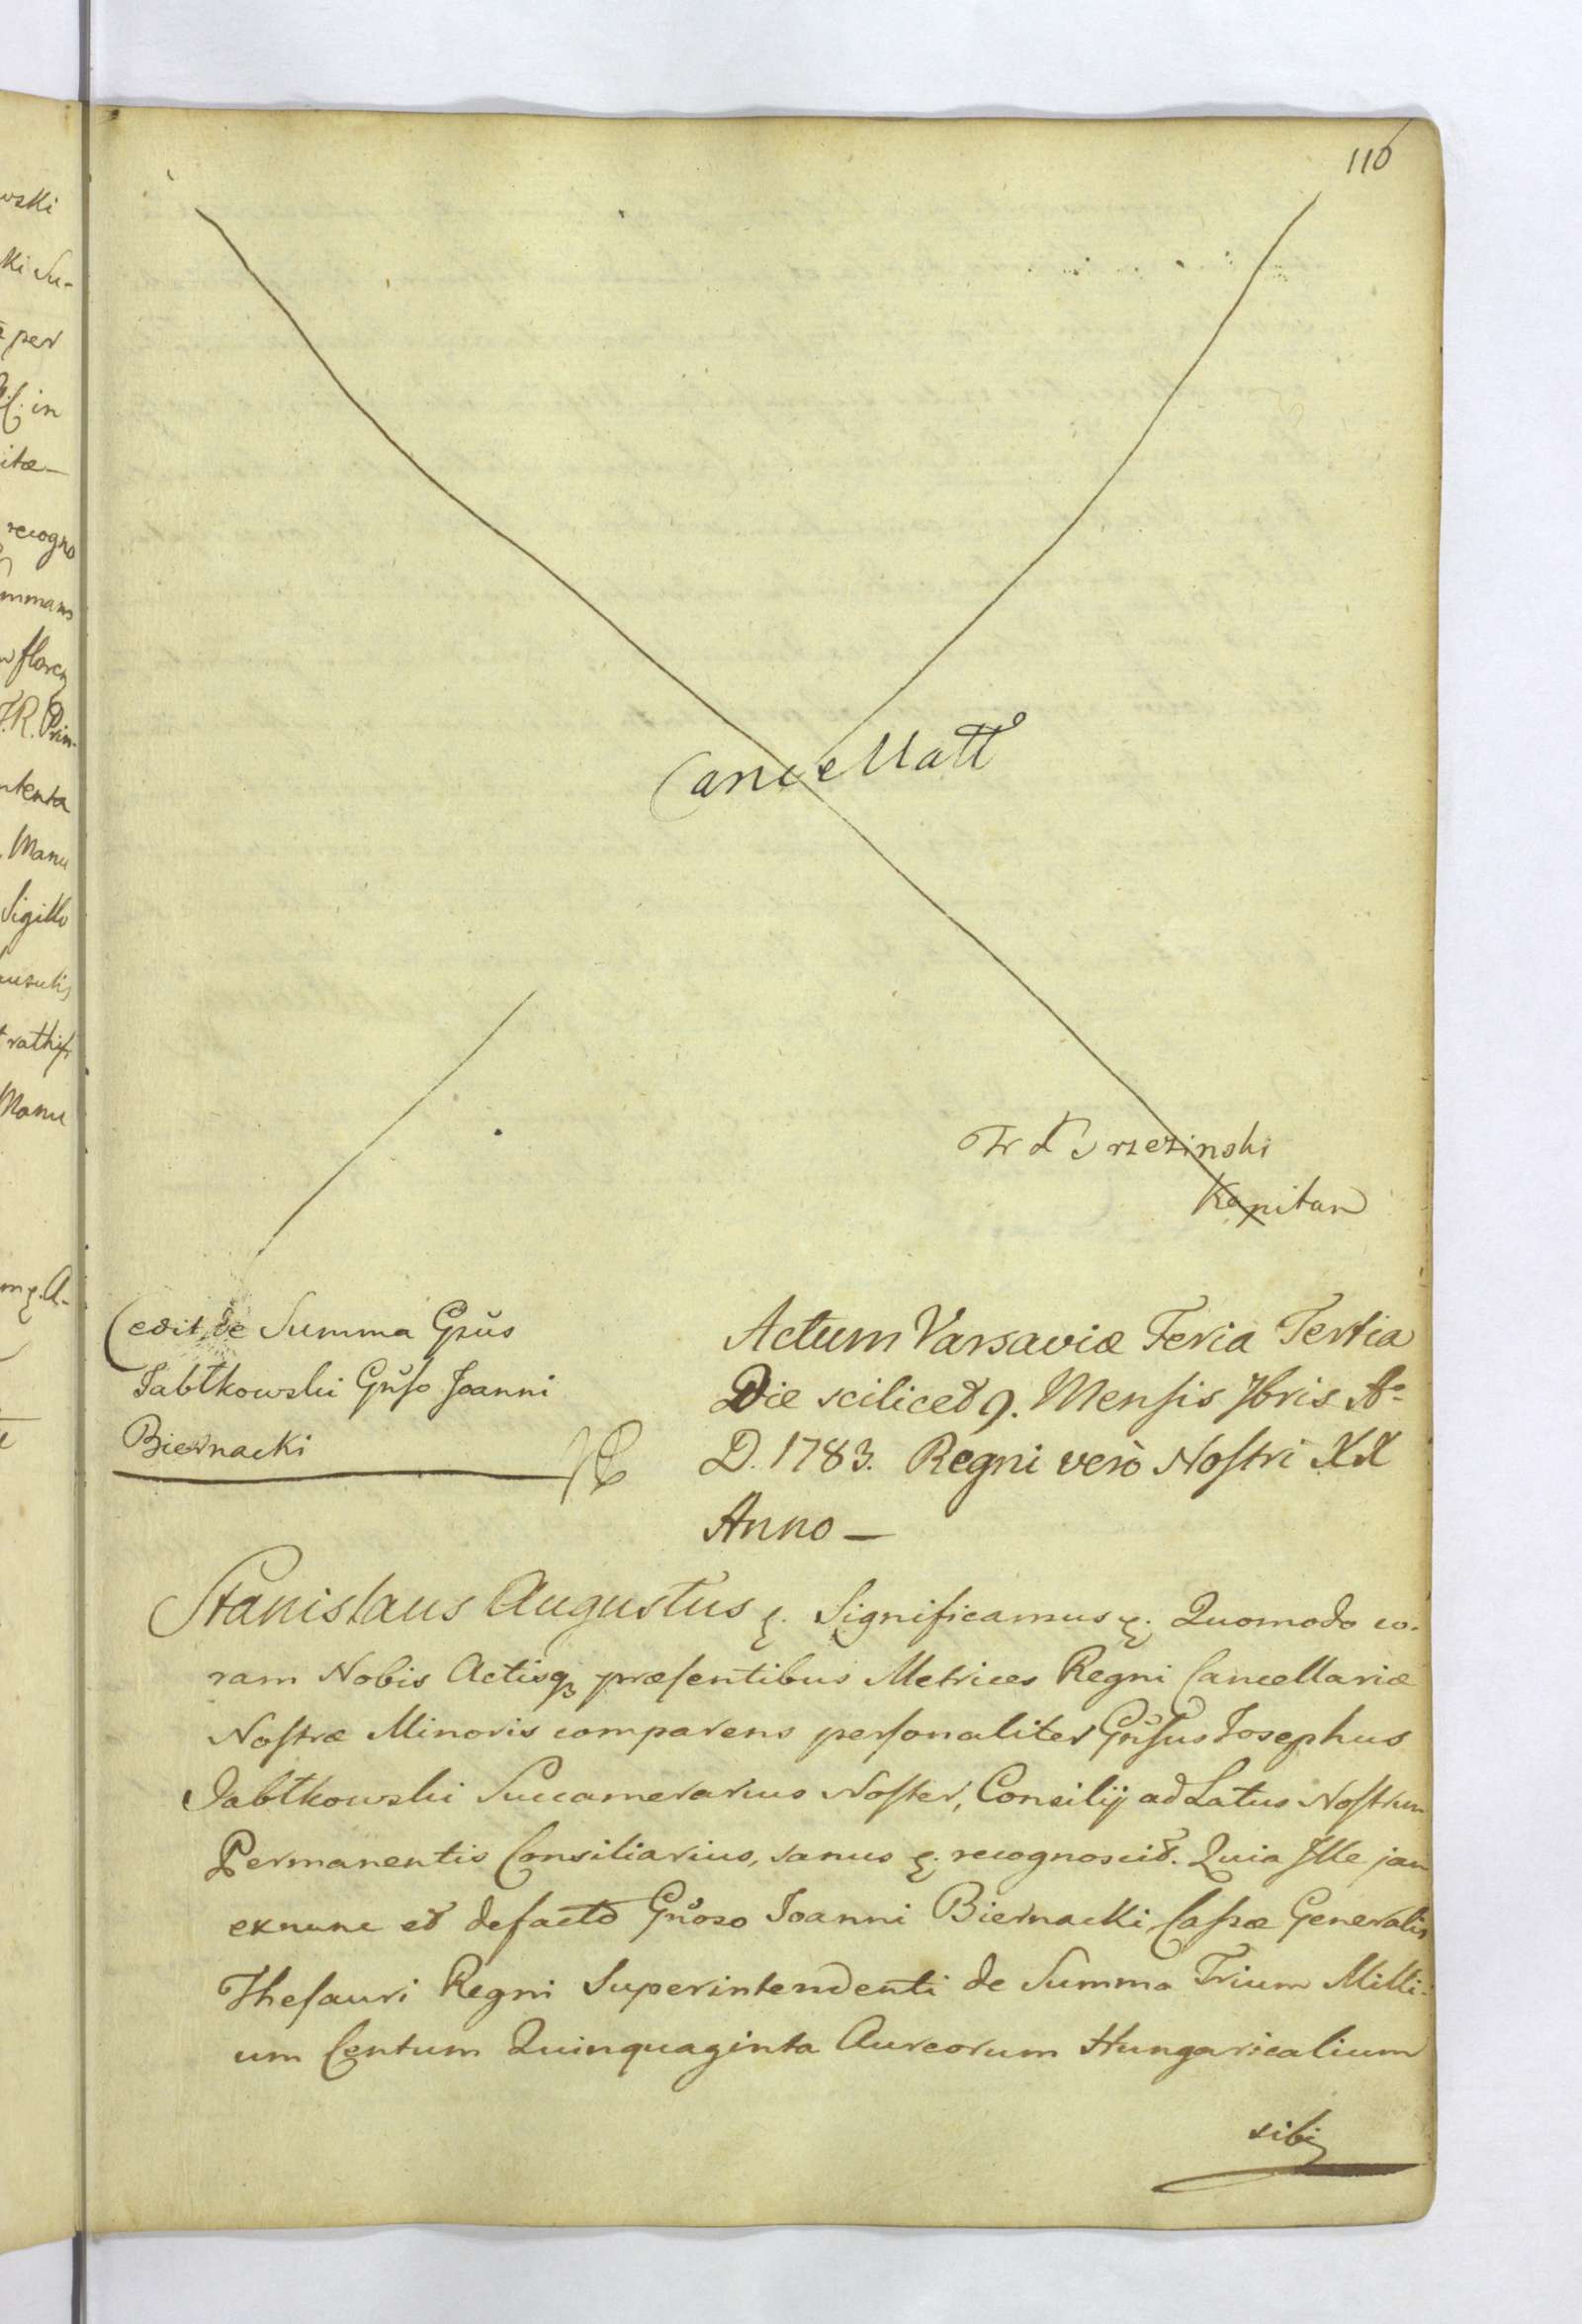 110
Cancellatt
Kapitan
Cedit de Summa Gnus
Jabłkowski Gnso Joanni
Biernacki
Actum Varsaviæ Feria Tertia
Die scilicet 9. Mensis 7bris Aº
D. 1783. Regni verò Nostri XX
Anno —
Stanislaus Augustus &. Significamus &. Quomodo co-
ram Nobis Actisq₃ præsentibus Metrices Regni Cancellariæ
Nostræ Minoris comparens personaliter Gnsus Josephus
Jabłkowski Succamerarius Noster, Consilij ad Latus Nostrum
Permanentis Consiliarius, sanus &. recognoscit. Quia Ille jam
exnunc et defacto Gnoso Joanni Biernacki Cassæ Generalis
Thesauri Regni Superintendenti de Summa Trium Milli-
um Centum Quinquaginta Aureorum Hungaricalium
sibi
wski
ki Su-
per
in
itæ
recogno
mmam
floren
F.R. Prin-
ntenta
Manu
Sigillo
ausulis
rathif
Manu
m &. A-